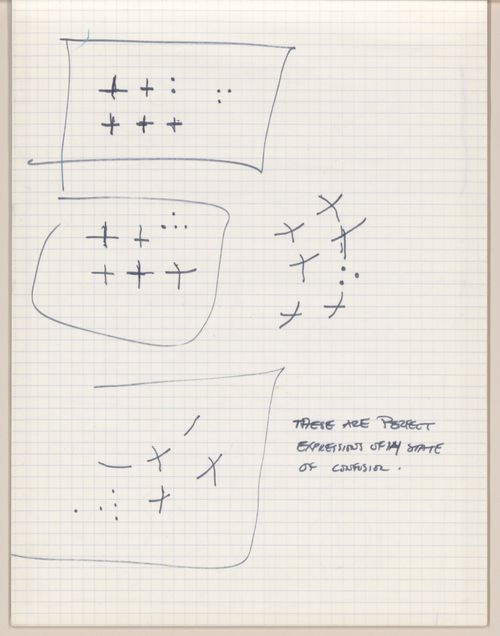 THESE ARE PERFECT
EXPRESSIONS OF MY STATE
OF CONFUSION.